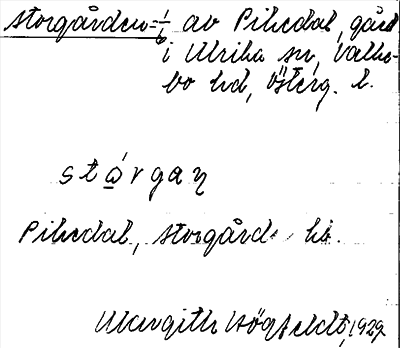 Storgården = 1/6 av Pikedal, gård
i Ulrika sn, Valke-
bo hd, Österg. l.
stǫ́rgaɳ
Pikedal, storgård
Margith Högfeldt, 1929